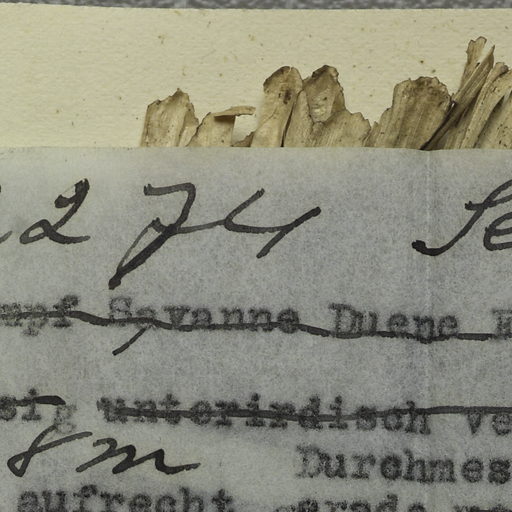 22 74 Se
mpf Savanne Duene
sig unterirdisch ve
8 m Durchmes
aufrecht gerade